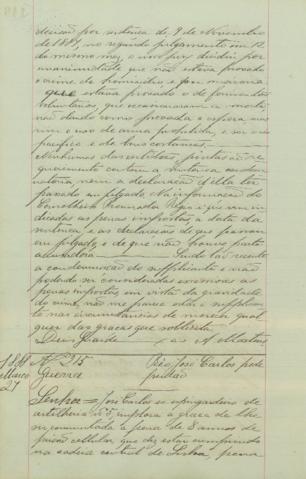 decisão por sentença de 9 de Novembro
de 1889, no segundo julgamento em 12
do mesmo mez, o novo jury decidiu por
unanimidade que não estava provado
o crime de homicidio e por maioria
que estava provado o de ferimentos
voluntarios, que occasionaram a morte,
não dando como provada a espera nem
o uso de arma prohibida, e ser o réo
pacifico e de bons costumes.
Nenhuma das certidões juntas ao re-
querimento contem a sentença condem-
natoria, nem a declaração d'ella ter
passado em julgado. Na informação do
Conselheiro Procurador Regio é que vem in-
dicadas as penas impostas, a data da
sentença, e as declarações de que passou
em julgado, e de que não houve parte
accusadora. Sendo tão recente
a condemnação do supplicante e não
podendo ser consideradas excessivas as
penas impostas, em vista da gravidade
do crime, não me parece estar o supplican-
te nas circumstancias de merecer qual-
quer das graças que sollicita.
Deus Guarde (as) Martens
Março
27
Nº 215
Guerra
Réo José Carlos pede
perdão
Senhor = José Carlos
artilheria nº 5, implora a graça de lhe
ser commutada a pena de 8 annos de
prisão cellular, que diz estar cumprindo
na cadeia central de Lisboa, para